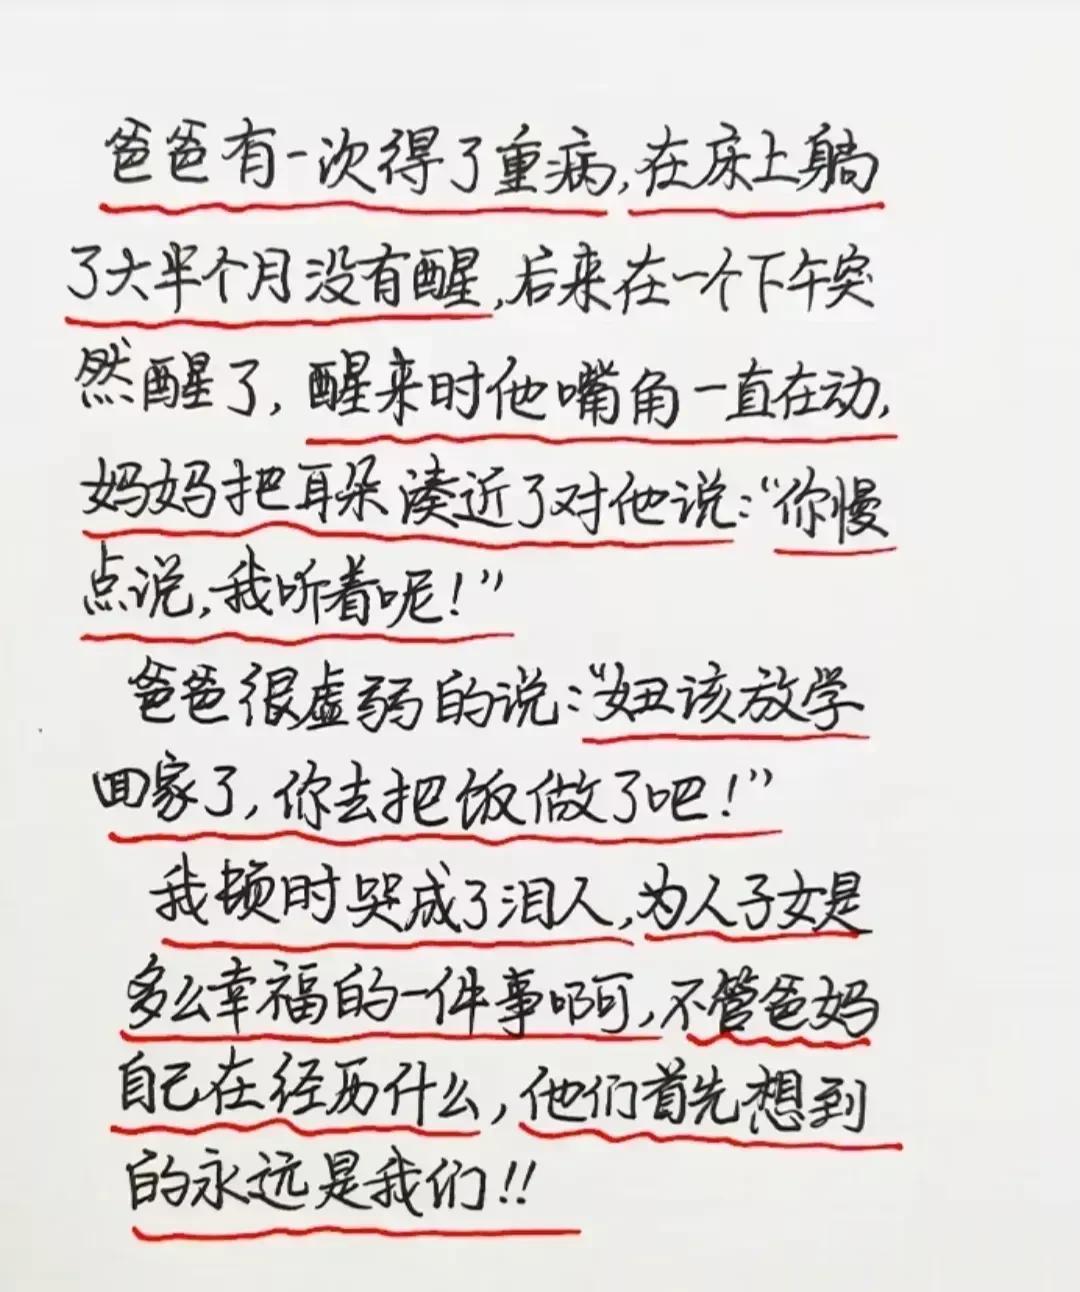 爸爸有一次得了重病,在床上躺
了大半个月没有醒,后来在一个下午突
然醒了,醒来时他嘴角一直在动,
妈妈把耳朵凑近了对他说:“你慢
点说,我听着呢!”
爸爸很虚弱的说:“妞该放学
回家了,你去把饭做了吧!”
我顿时哭成了泪人,为人子女是
多么幸福的一件事啊,不管爸妈
自己在经历什么,他们首先想到
的永远是我们!!